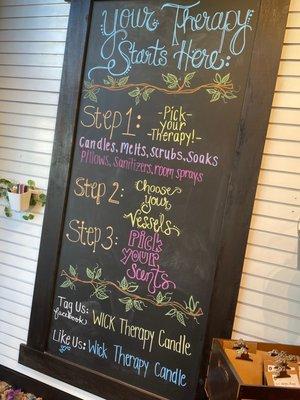 Your Therapy
Starts Here:
Step 1: -Pick-
your
-Therapy!-
Candles, Melts, Scrubs, Soaks
Pillows, Sanitizers, room sprays
Step 2: Choose
Your
Vessels
Step 3: Pick
your
Scents
Tag Us: WICK Therapy Candle
facebook
Like Us: Wick Therapy Candle